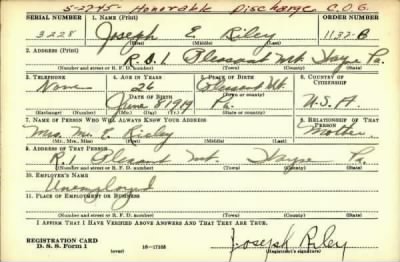 S-2745- Honorable Discharge C.O.G.
SERIAL NUMBER 1. NAME (Print) ORDER NUMBER
3228 Joseph E Riley 1132-B
(First) (Middle) (Last)
2. ADDRESS (Print)
R.D.1 Pleasant Mt. Wayne Pa.
(Number and street or R. F. D. number) (Town) (County) (State)
3. TELEPHONE 4. AGE IN YEARS 5. PLACE OF BIRTH 6. COUNTRY OF CITIZENSHIP
None 26 Pleasant Mt.
DATE OF BIRTH (Town or county)
June 8 1914 Pa. U.S.A.
(Exchange) (Number) (Mo.) (Day) (Yr.) (State or country)
7. NAME OF PERSON WHO WILL ALWAYS KNOW YOUR ADDRESS 8. RELATIONSHIP OF THAT PERSON
Mrs. M. E. Riley Mother
(Mr., Mrs., Miss) (First) (Middle) (Last)
9. ADDRESS OF THAT PERSON
R.1 Pleasant Mt. Wayne Pa.
(Number and street or R. F. D. number) (Town) (County) (State)
10. EMPLOYER'S NAME
Unemployed
11. PLACE OF EMPLOYMENT OR BUSINESS
(Number and street or R. F. D. number) (Town) (County) (State)
I AFFIRM THAT I HAVE VERIFIED ABOVE ANSWERS AND THAT THEY ARE TRUE.
REGISTRATION CARD
D. S. S. Form 1 (over) 16-17105 Joseph Riley
(Registrant's signature)